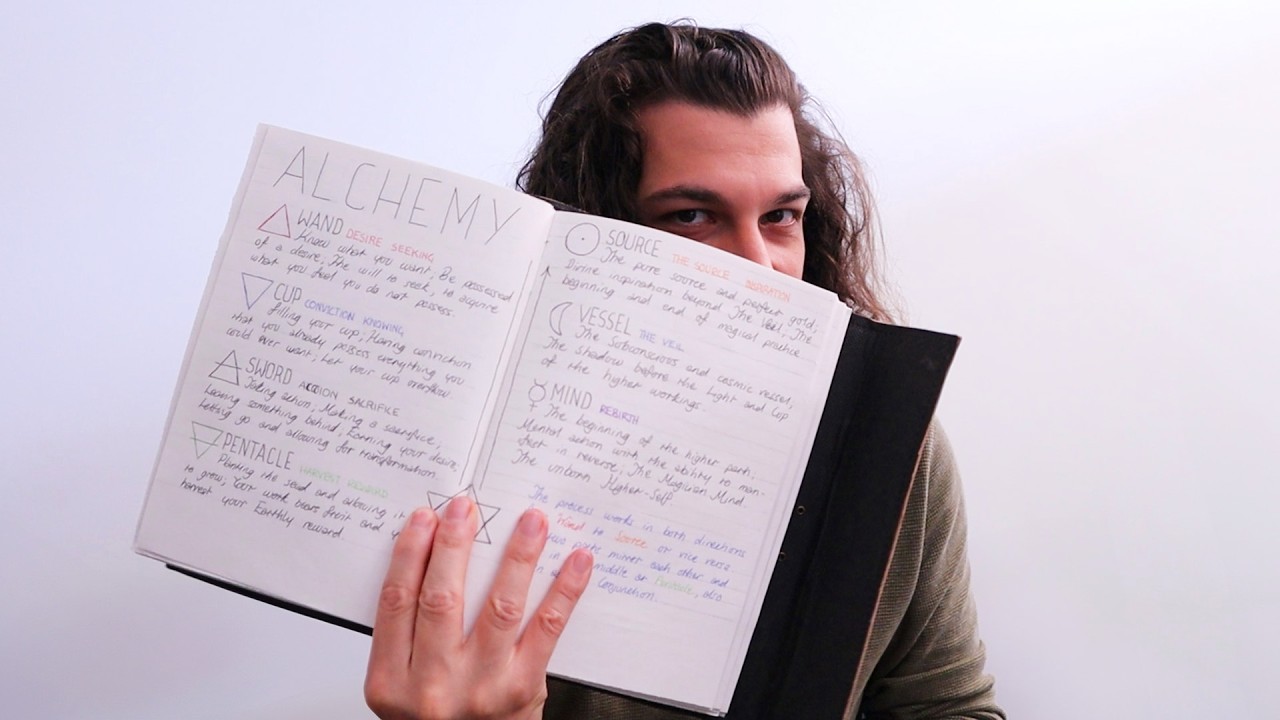 ALCHEMY
WAND DESIRE SEEKING
Know what you want; Be possessed
of a desire; The will to seek, to acquire
what you feel you do not possess.
CUP CONVICTION KNOWING
filling your cup; Having conviction
that you already possess everything you
could ever want; Let your cup overflow.
SWORD ACTION SACRIFICE
Taking action; Making a sacrifice;
Leaving something behind; Earning your desire;
Letting go and allowing for transformation.
PENTACLE HARVEST REWARD
Planting the seed and allowing it
to grow; Your work bears fruit and y
harvest your Earthly reward.
SOURCE THE SOURCE INSPIRATION
The pure source and perfect gold;
Divine inspiration beyond The Veil; The
beginning and end of magical practice.
VESSEL THE VEIL
The Subconscious and cosmic vessel,
The shadow before the Light and Cup
of the higher workings.
MIND REBIRTH
The beginning of the higher path;
Mental action with the ability to man-
ifest in reverse; The Magician Mind.
The unborn Higher-Self.
The process works in both directions
Wand to Source or vice versa
two parts mirror each other and
in middle at Pentacle, also
Conjunction.